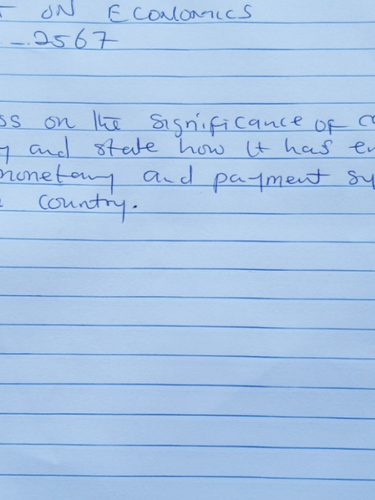 T ON ECONOMICS
-.2567
ss on the significance of c
y and state how it has en
monetary and payment sy
e country.